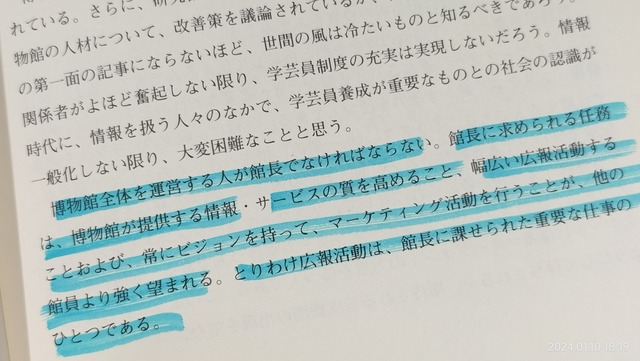 れている。さらに、研究
物館の人材について、改善策を議論されているが、
の第一面の記事にならないほど、世間の風は冷たいものと知るべきであろう。
関係者がよほど奮起しない限り、学芸員制度の充実は実現しないだろう。情報
時代に、情報を扱う人々のなかで、学芸員養成が重要なものとの社会の認識が
一般化しない限り、大変困難なことと思う。
博物館全体を運営する人が館長でなければならない。館長に求められる任務
は、博物館が提供する情報・サービスの質を高めること、幅広い広報活動する
ことおよび、常にビジョンを持って、マーケティング活動を行うことが、他の
館員より強く望まれる。とりわけ広報活動は、館長に課せられた重要な仕事の
ひとつである。
2024.01.10 18:19